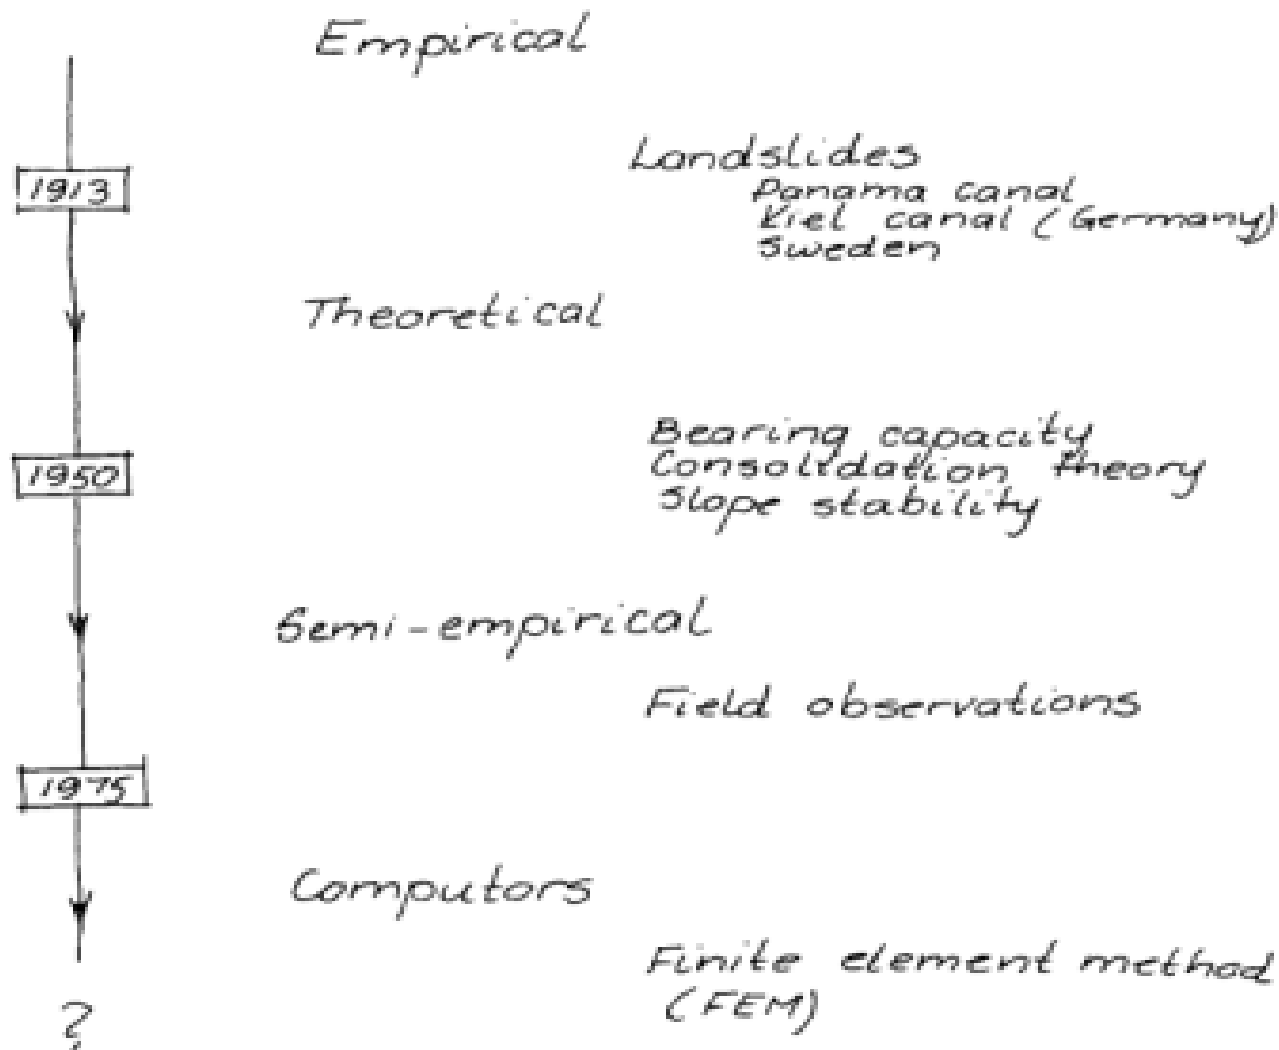 Empirical
Landslides
1913
Panama canal
Kiel canal (Germany)
Sweden
Theoretical
Bearing capacity
1950
Consolidation theory
Slope stability
Semi-empirical
Field observations
1975
Computors
Finite element method
(FEM)
?